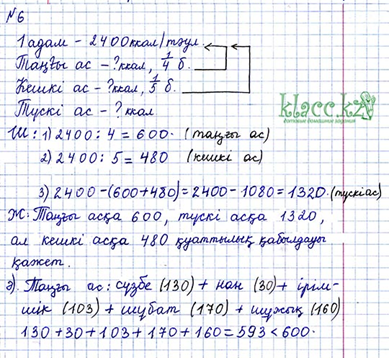 №6
1 адам – 2400 ккал/тәул
Таңғы ас – ? ккал, 1/4 б.
Кешкі ас – ? ккал, 1/5 б.
Түскі ас – ? ккал
klacc.kz
готовые домашние задания
Ш: 1) 2400 : 4 = 600. (таңғы ас)
2) 2400 : 5 = 480 (кешкі ас)
3) 2400 – (600 + 480) = 2400 – 1080 = 1320. (түскі ас)
Ж: Таңғы асқа 600, түскі асқа 1320,
ал кешкі асқа 480 қуаттылық қабылдауы
қажет.
э). Таңғы ас: сүзбе (130) + нан (30) + ірім-
шік (103) + шұбат (170) + шұжық (160)
130 + 30 + 103 + 170 + 160 = 593 < 600.